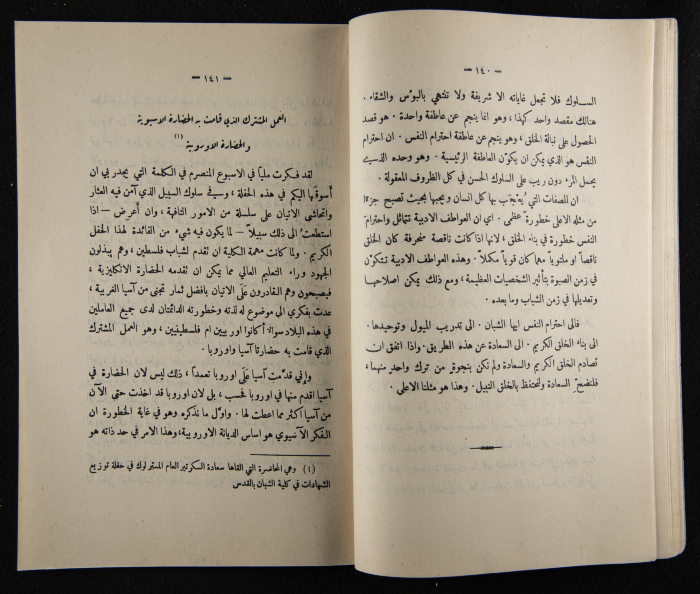 — ١٤٠ —
السلوك فلا تجعل غاياته الا شريفة ولا تنتهي بالبؤس والشقاء .
هنالك مقصد واحد كهذا ، وهو انما ينجم عن عاطفة واحدة : هو قصد
الحصول على نبالة الخلق ، وهو ينجم عن عاطفة احترام النفس . ان احترام
النفس هو الذي يمكن ان يكوّن العاطفة الرئيسية . وهو وحده الذي
يحمل المرء دون ريب على السلوك الحسن في كل الظروف المعقولة .
ان للصفات التي يُعْجَب بها كل انسان ويحبها بحيث تصبح جزءًا
من مثله الاعلى خطورة عظمى . اي ان العواطف الادبية تتماثل واحترام
النفس خطورة في بناء الخلق ، لانها اذا كانت ناقصة منحرفة كان الخلق
ناقصاً او ملتوياً مهما كان قوياً متكلاً . وهذه العواطف الادبية تتكوّن
في زمن الصبوة بتأثير الشخصيات العظيمة ، ومع ذلك يمكن اصلاحها
وتعديلها في زمن الشباب وما بعده .
فالى احترام النفس ايها الشبان . الى تدريب الميول وتوحيدها .
الى بناء الخلق الكريم . الى السعادة عن هذه الطريق . واذا اتفق ان
تصادم الخلق الكريم والسعادة ولم نكن بنجوة من ترك واحد منهما ،
فلنضحِّ السعادة ولنحتفظ بالخلق النبيل . وهذا هو مثلنا الاعلى .
— ١٤١ —
العمل المشترك الذي قامت به الحضارة الاسيوية
والحضارة الاوروبية (١)
لقد فكرت ملياً في الاسبوع المنصرم في الكلمة التي يجدر بي ان
أسوقها اليكم في هذه الحفلة ، وفي سلوك السبيل الذي آمن فيه العثار
واتحاشى الاتيان على سلسلة من الامور التافهة ، وان أعرض — اذا
استطعت الى ذلك سبيلاً — لما يكون فيه شيء من الفائدة لهذا الحفل
الكريم . ولما كانت مهمة الكلية ان تقدم لشباب فلسطين ، وهم يبذلون
الجهود وراء التعليم العالي مما يمكن ان تقدمه الحضارة الانكليزية ،
فيصبحون وهم القادرون عَلَى الاتيان بافضل ثمار تجنى من آسيا الغربية ،
عدت بفكري الى موضوع له لذته وخطورته الدائمتان لدى جميع العاملين
في هذه البلاد سواءً أكانوا اوربيين ام فلسطينيين ، وهو العمل المشترك
الذي قامت به حضارتا آسيا واوروبا .
واني قدّمت آسيا عَلَى اوروبا تعمداً ، ذلك ليس لان الحضارة في
آسيا اقدم منها في اوروبا فحسب ، بل لان اوروبا قد اخذت حتى الآن
من آسيا اكثر مما اعطت لها . واول ما نذكره وهو في غاية الخطورة ان
الفكر الآسيوي هو اساس الديانة الاوروبية ، وهذا الامر في حد ذاته هو
(١) وهي المحاضرة التي القاها سعادة السكرتير العام المستر لوك في حفلة توزيع
الشهادات في كلية الشبان بالقدس